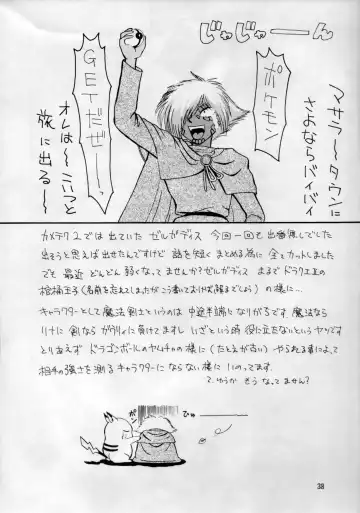 じゃじゃーーん
マサラ〜タウンに
さよならバイバイ
ポケモン
GETだぜーーっ
オレは〜こいつと
旅に出る〜
カメテク2では出ていた ゼルガディス 今回一回も出番無しでした
出そうと思えば出せたんですけど 話を短くまとめる為に 全てカットしました
でも 最近 どんどん 弱くなってませんか?ゼルガディス まるでドラクエIIの
(名前を忘れてしまったが こう書いておけば解るでしょう) の様に…
キャラクターとして 魔法剣士というのは 中途半端になりがちです 魔法なら
リナに 剣なら ガウリィに 負けてますし いざという時 役に立たないという ヤツです
とりあえず ドラゴンボールのヤムチャの様に (たとえが古い) やられる事によって
相手の強さを 測る キャラクターに ならない様に いのってます。
て、ゆうか そう なってません?
ガン
ひゅーーーー
38